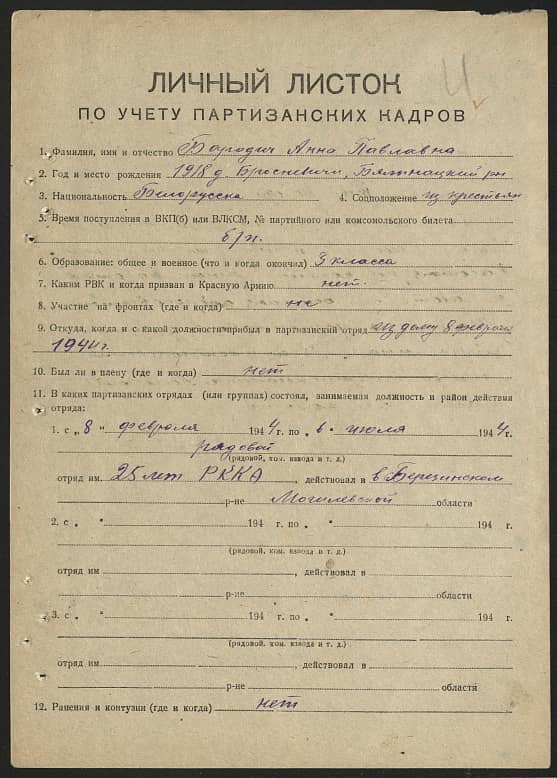 И
ЛИЧНЫЙ ЛИСТОК
ПО УЧЕТУ ПАРТИЗАНСКИХ КАДРОВ
1. Фамилия, имя и отчество Бородич Анна Павловна
2. Год и место рождения 1918 д. Бросневичи, Белыничский рн
3. Национальность Белорусска 4. Соцположение из крестьян
5. Время поступления в ВКП(б) или ВЛКСМ, № партийного или комсомольского билета
б/п.
6. Образование: общее и военное (что и когда окончил) 3 класса
7. Каким РВК и когда призван в Красную Армию нет.
8. Участие на фронтах (где и когда) не
9. Откуда, когда и с какой должности прибыл в партизанский отряд из дому 8 февраля
1944 г.
10. Был ли в плену (где и когда) нет
11. В каких партизанских отрядах (или группах) состоял, занимаемая должность и район действия
отряда:
1. с „ 8 " февраля 1944 г. по „ 6 " июля 1944 г.
рядовой
(рядовой, ком. взвода и т. д.)
отряд им. 25 лет РККА, действовал в в Березинском
р-не Могилевской области
2. с „ " 194 г. по „ " 194 г.
(рядовой, ком. взвода и т. д.)
отряд им. , действовал в
р-не области
3. с „ " 194 г. по „ " 194 г.
(рядовой, ком. взвода и т. д.)
отряд им. , действовал в
р-не области
12. Ранения и контузии (где и когда) нет